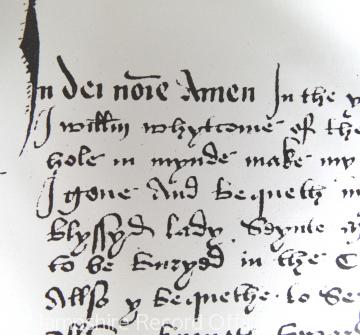 In dei no͞ie Amen In the y
I will͞m whytcome of the
hole in mynde make my
I geue And be queth m
blyssyd lady Seynte
to be buryed in the C
Allso y bequethe to Se
Hampshire Record Office